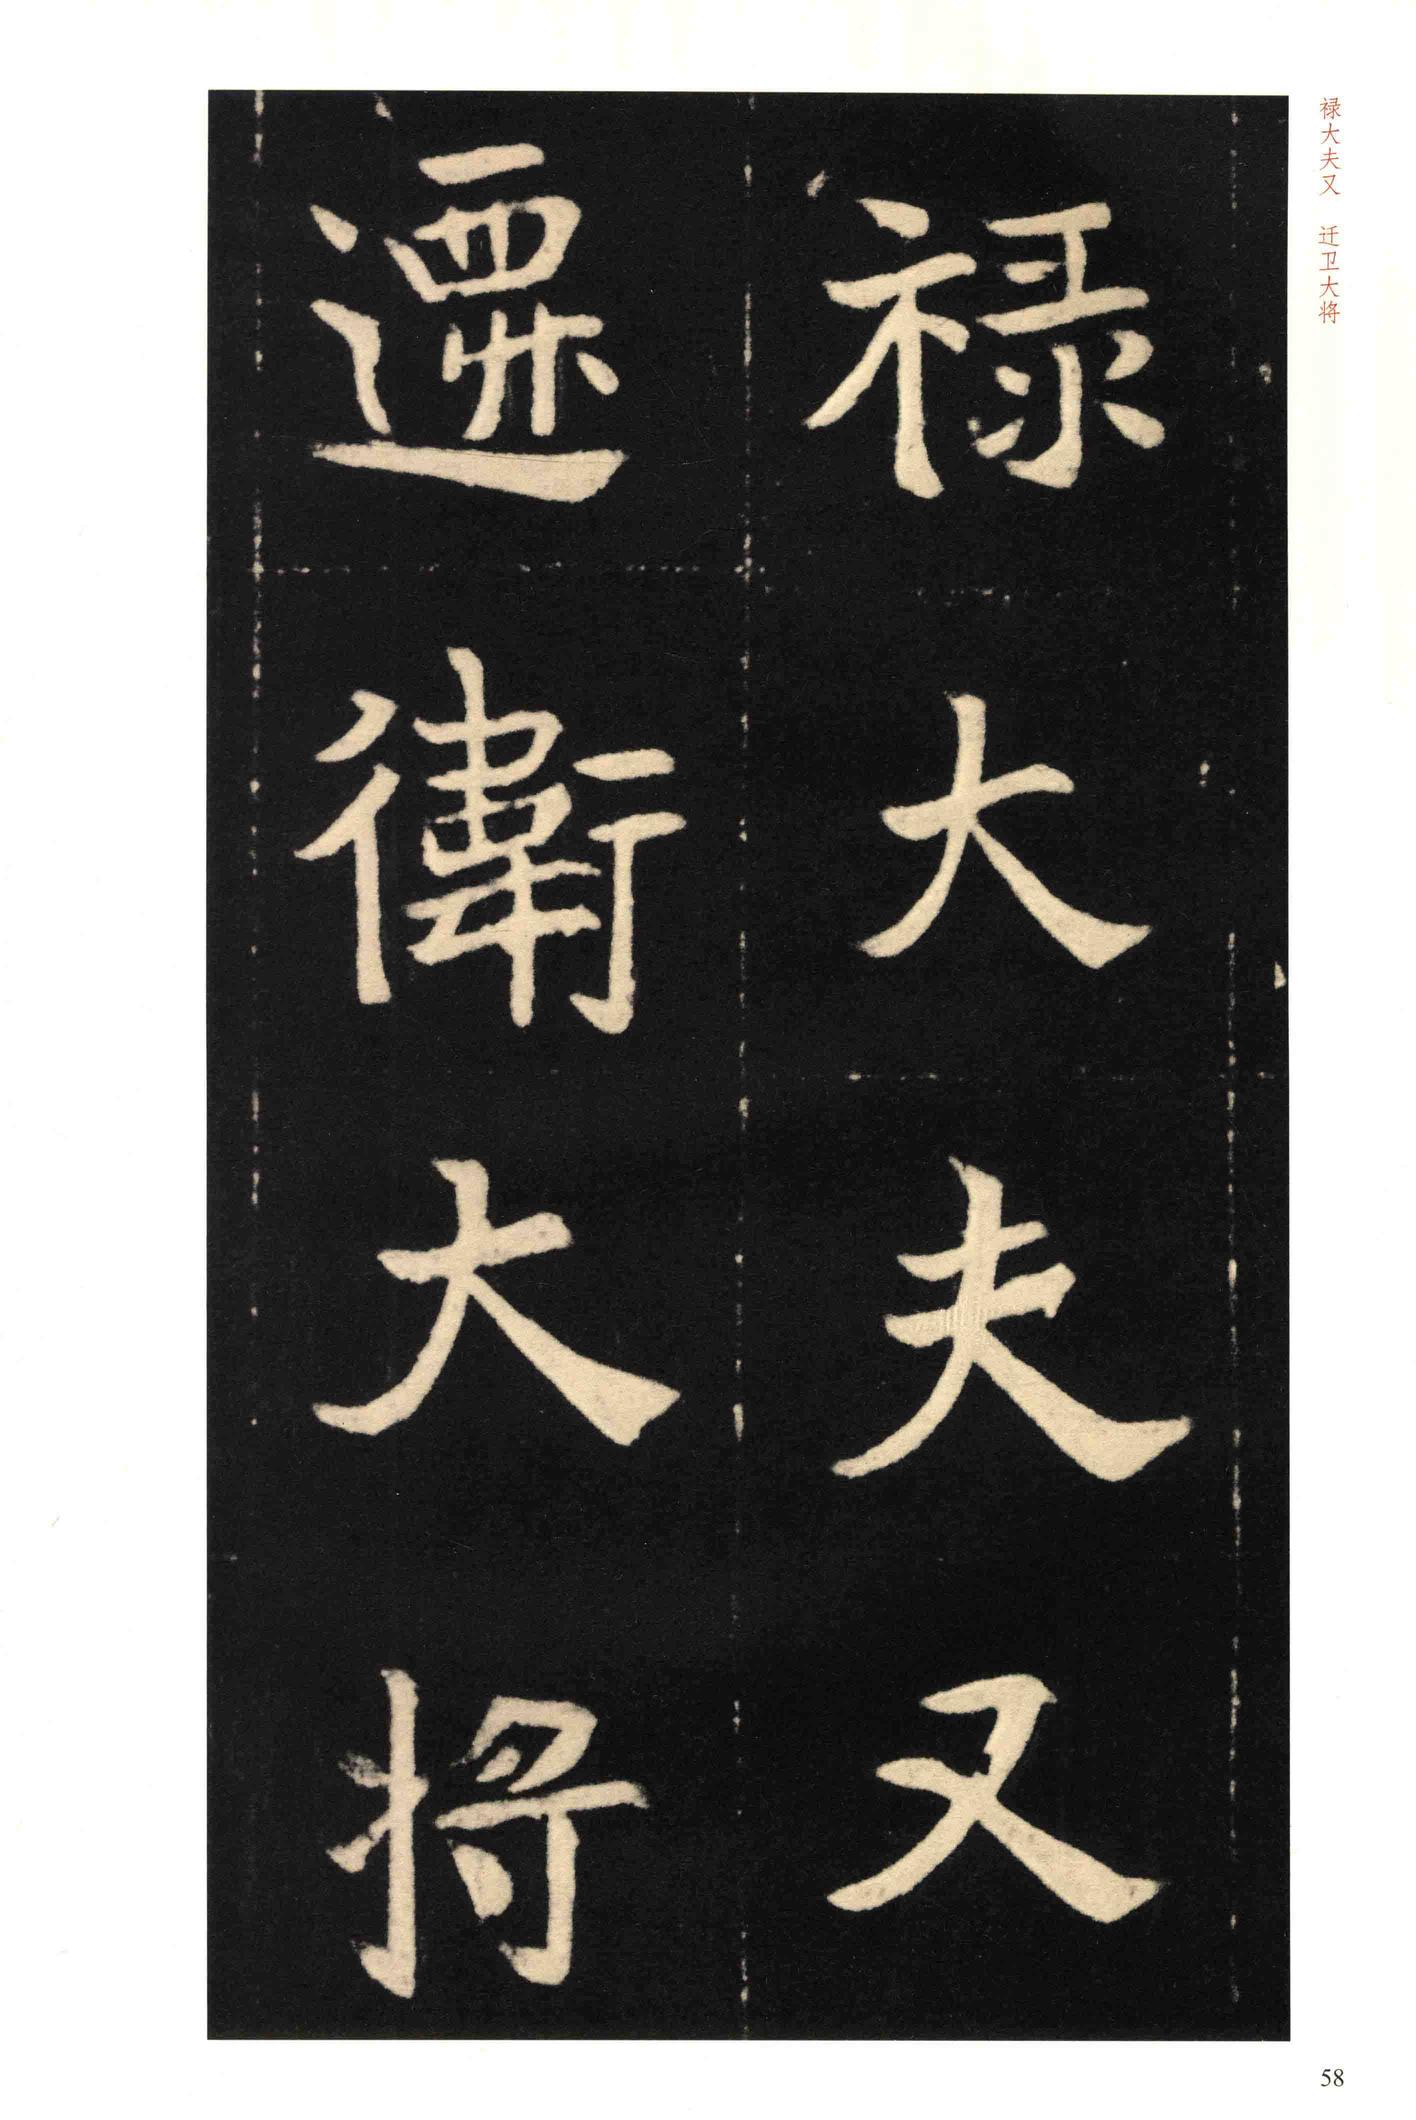 禄大夫又 迁卫大将
禄大夫又
遷衛大将
58